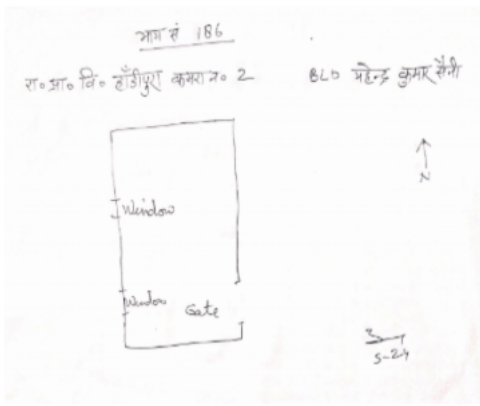 भाग सं 186
रा॰ आ॰ वि॰ हाँडीपुरा कमरा न॰ 2 BLO महेन्द्र कुमार सैनी
N
Window
Window Gate
S-24